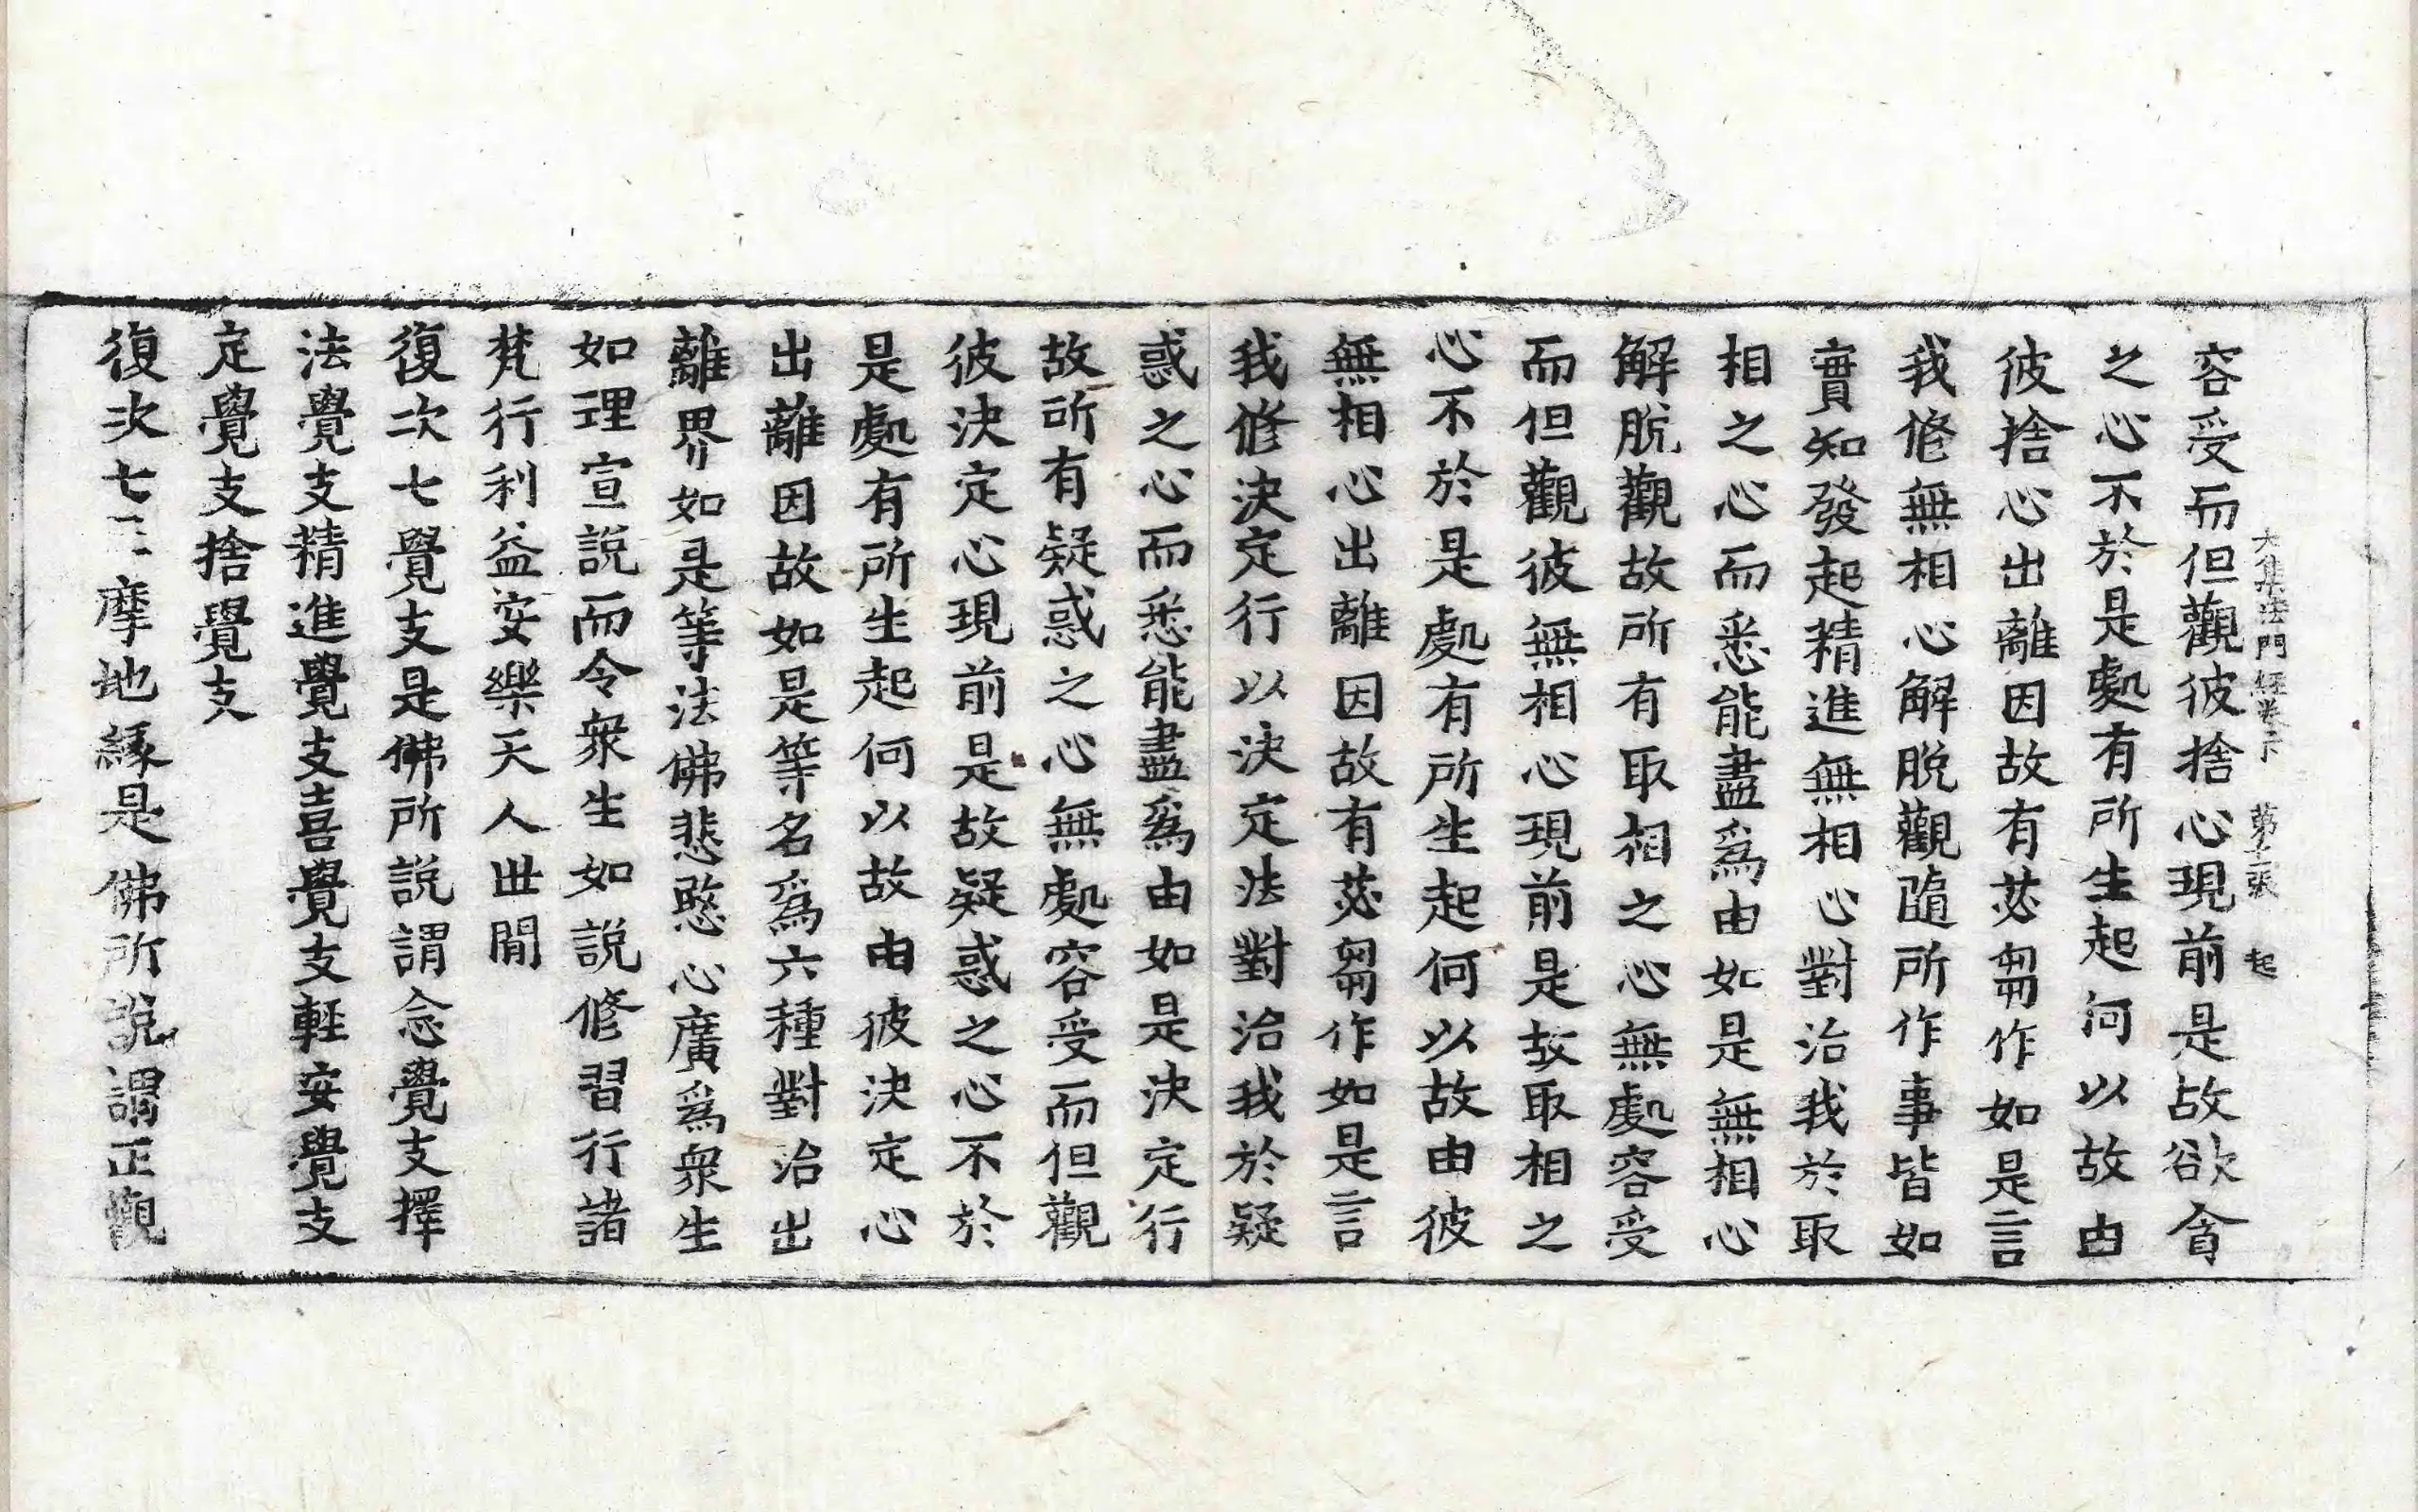 大集法門經卷下 第二張 起
容受而但觀彼捨心現前是故欲貪
之心不於是處有所生起何以故由
彼捨心出離因故有苾芻作如是言
我修無相心解脫觀隨所作事皆如
實知發起精進無相心對治我於取
相之心而悉能盡爲由如是無相心
解脫觀故所有取相之心無處容受
而但觀彼無相心現前是故取相之
心不於是處有所生起何以故由彼
無相心出離因故有苾芻作如是言
我修決定行以決定法對治我於疑
惑之心而悉能盡爲由如是決定行
故所有疑惑之心無處容受而但觀
彼決定心現前是故疑惑之心不於
是處有所生起何以故由彼決定心
出離因故如是等名爲六種對治出
離界如是等法佛悲愍心廣爲衆生
如理宣說而令衆生如說修習行諸
梵行利益安樂天人世間
復次七覺支是佛所說謂念覺支擇
法覺支精進覺支喜覺支輕安覺支
定覺支捨覺支
復次七三摩地緣是佛所說謂正觀